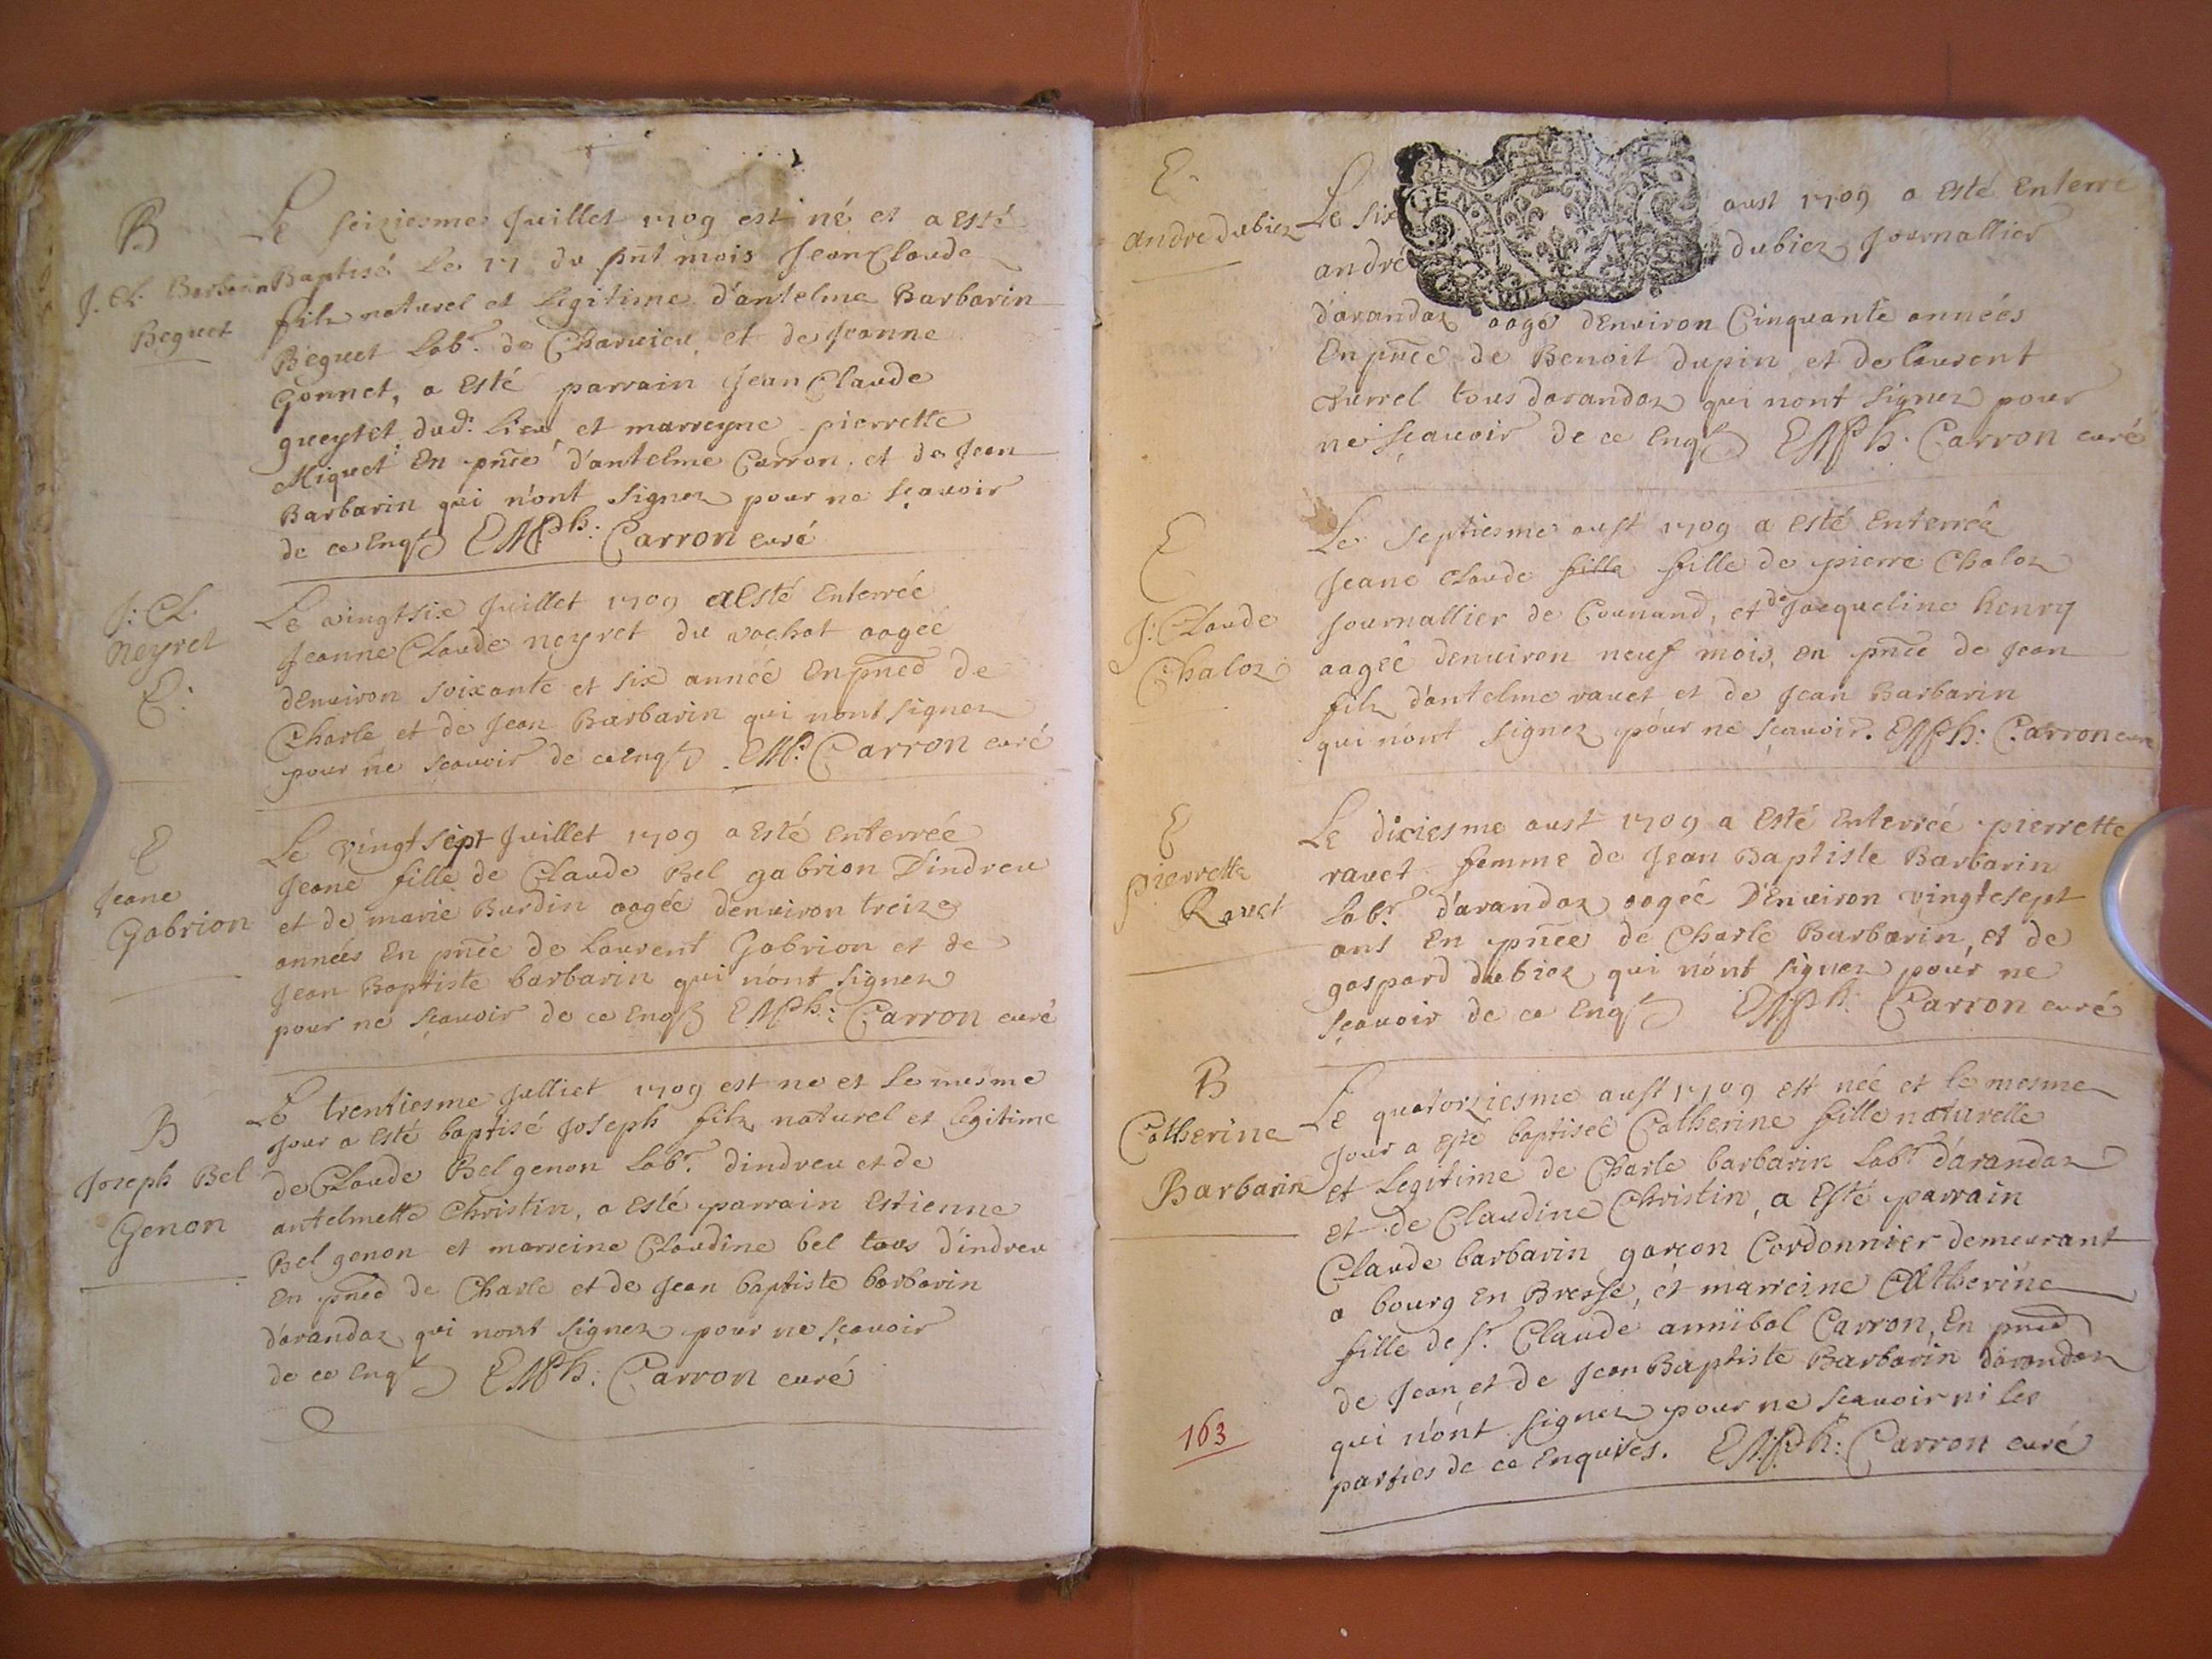 B
J. Cl. Barbarin
Beguet
Le seiziesme Juillet 1709 est né et a esté
Baptisé Le 17 du pnt mois Jean Claude
filz naturel et Legitime d'antelme Barbarin
Beguet Labr. de Charvieu et de Jeanne
Gonnet, a Esté parrain Jean Claude
gueytet dud. Lieu et marreyne pierrette
Miquet En pnce d'antelme Carron, et de Jean
Barbarin qui n'ont signez pour ne sçavoir
de ce Enqs Emph: Carron curé
J: Cl.
Neyret
E:
Le vingtsix Juillet 1709 a Esté Enterrée
Jeanne Claude neyret du vachat aagée
dEnviron soixante et six année En pnce de
Charle et de Jean Barbarin qui nont signez
pour ne sçavoir de ce Enqs EMP. Carron curé
E
Jeane
Gabrion
Le vingt sept Juillet 1709 a Esté enterrée
Jeane fille de Claude Bel gabrion D'indreu
et de marie Burdin aagée denviron treize
années En pnce de Laurent Gabrion et de
Jean Baptiste barbarin qui n'ont signez
pour ne sçavoir de ce Enqs EMPh: Carron curé
B
Joseph Bel
Genon
Le trentiesme Julliet 1709 est ne et le mesme
Jour a Esté baptisé Joseph filz naturel et Legitime
de Claude Bel genon Labr. dindreu et de
antelmette Christin, a esté parrain Estienne
Bel genon et marreine Claudine bel tous d'indreu
En pnce de Charle et de Jean baptiste barbarin
d'arandaz qui nont signez pour ne sçavoir
de ce Enqs EMPh: Carron curé
E.
andre dubiez
Le six aust 1709 a Esté Enterré
andré dubiez Journallier
d'arandaz aagé dEnviron Cinquante années
En pnce de Benoit dupin et de laurent
tous darandaz qui nont signez pour
ne sçavoir de ce Enqs EMPh. Carron curé
GEN
E
J: Claude
Chaloz
Le septiesme aust 1709 a esté Enterrée
Jeane Claude fille fille de pierre Chaloz
Journallier de Counand, et de Jacqueline henry
aagée denviron neuf mois, en pnce de Jean
filz d'antelme ravet et de Jean Barbarin
qui n'ont signez pour ne sçavoir. EMPh: Carron curé
E
pierrette
Ravet
Le dixiesme aust 1709 a Esté Enterrée pierrette
ravet femme de Jean Baptiste Barbarin
Labr. d'arandaz aagée D'Environ vingtesept
ans En pnce de Charle Barbarin, et de
gaspard dubiez qui n'ont signez pour ne
sçavoir de ce Enqs EMPh. Carron curé
B
Catherine
Barbarin
Le quatorziesme aust 1709 est née et le mesme
Jour a esté baptisée Catherine fille naturelle
et Legitime de Charle barbarin Labr d'arandaz
et de Claudine Christin, a Esté parrain
Claude barbarin garcon Cordonnier demeurant
a bourg En Bresse, et marreine Catherine
fille de sr. Claude annibal Carron, En pnce
de Jean et de Jean Baptiste Barbarin d'arandaz
qui n'ont signez pour ne sçavoir ni les
parties de ce Enquises. EMPh: Carron curé
163